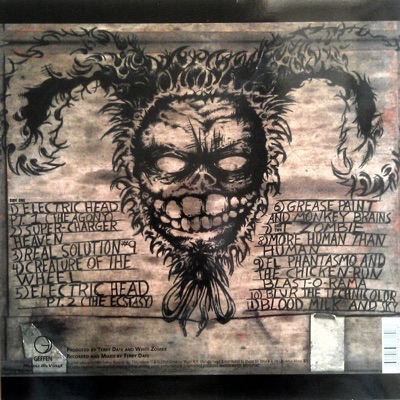 SIDE ONE
1) ELECTRIC HEAD
PT. 1 (THE AGONY)
2) SUPER-CHARGER
HEAVEN
3) REAL SOLUTION #9
4) CREATURE OF THE
WHEEL
5) ELECTRIC HEAD
PT. 2 (THE ECSTASY)
6) GREASE PAINT
AND MONKEY BRAINS
7) I, ZOMBIE
8) MORE HUMAN THAN
HUMAN
9) EL PHANTASMO AND
THE CHICKEN RUN
BLAST-O-RAMA
10) BLUR THE TECHNICOLOR
11) BLOOD, MILK AND SKY
GEFFEN
PRODUCED BY TERRY DATE AND WHITE ZOMBIE
RECORDED AND MIXED BY TERRY DATE